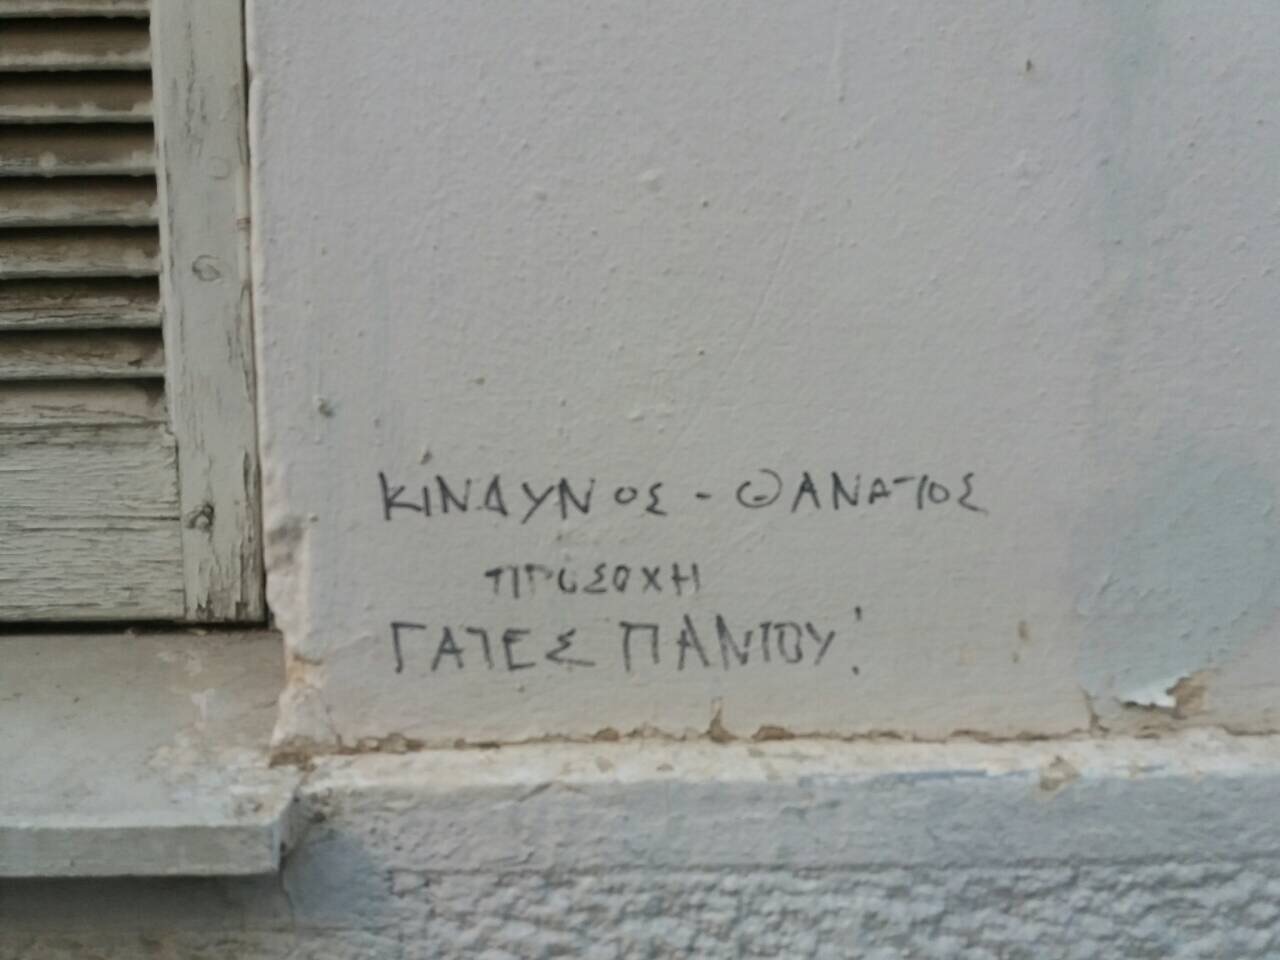 ΚΙΝΔΥΝΟΣ - ΘΑΝΑΤΟΣ
ΠΡΟΣΟΧΗ
ΓΑΤΕΣ ΠΑΝΤΟΥ!